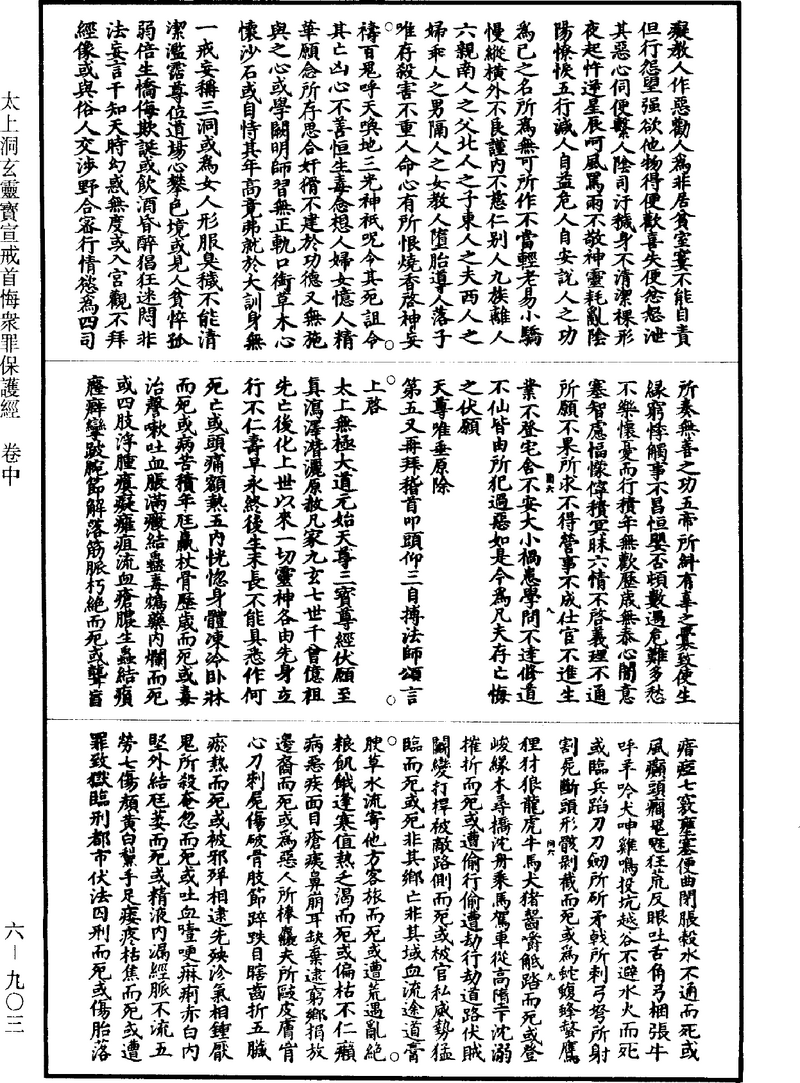 太上洞玄靈寶宣戒首悔衆罪保護經　卷中
六—九〇三
癡教人作惡勸人為非居貧室寠不能自責
但行怨望强欲他物得便歡喜失便忿怒泄
其惡心伺便繫人陰司汙穢身不清潔裸形
夜起忤逆星辰呵風罵雨不敬神靈耗亂陰
陽憭悷五行滅人自益危人自安說人之功
為已之名所為無可所作不當輕老易小驕
慢縱橫外不良謹內不慈仁別人九族離人
六親南人之父北人之子東人之夫西人之
婦乖人之男隔人之女教人墮胎導人落子
唯存殺害不重人命心有所恨燒香啓神妄
禱百鬼呼天喚地三光神祇呪令其死詛令
其亡凶心不善恒生毒念想人婦女憶人精
華願念所存思合奸猾不建於功德又無施
與之心或學闕明師習無正軌口銜草木心
懷沙石或自恃其年高竟弗就於大訓身無
一戒妄稱三洞或為女人形服臭穢不能清
潔濫霑尊位道場心攀色境或見人貧悴孤
弱倍生憍侮欺誕或飲酒昏醉猖狂迷悶非
法妄言干知天時幻惑無度或入宮觀不拜
經像或與俗人交涉野合審行情慾為四司
所奏無善之功五帝所糾有辜之釁致使生
緣窮悴觸事不昌恒嬰否頓數遇危難多愁
不樂懷憂而行積年無歡歷歲無泰心闇意
塞智慮愊懞儜積冥昧六情不啓義理不通
所願不果所求不得營事不成仕官不進生
業不登宅舍不安大小禍患學問不達修道
不仙皆由所犯過惡如是今為凡夫存亡悔
之伏願
天尊唯垂原除
第五又再拜稽首叩頭仰三自搏法師頌言
上啓
太上無極大道元始天尊三寶尊經伏願至
真瀉澤潛灑原赦凡家九玄七世千曾億祖
先亡後化上世以來一切靈神各由先身立
行不仁壽草永終後生未長不能具悉作何
死亡或頭痛額熱五內恍惚身體凍冷卧牀
而死或病苦積年尫羸杖骨歷歲而死或毒
治聲嗽吐血脹滿癥結蠱毒鴆藥內爛而死
或四肢浮腫癀癡癰疽流血瘡膿生蟲結㿉
塵癬攣跛腕節解落筋脈朽絕而死或聾盲
瘖瘂七竅壅塞便曲閉脹穀水不通而死或
風癲頭癎鬼魅狂荒反眼吐舌角弓梱張牛
呼羊吟犬呻雞鳴投坑越谷不避水火而死
或臨兵蹈刀刀劒所斫矛戟所刺弓弩所射
割屍斷頭形骸剝截而死或為蛇蝮蜂螫鷹
狸犲狼龍虎牛馬犬猪齧嚼觝踏而死或登
峻緣木尋橋沈舟乘馬駕車從高墮下沈溺
摧折而死或遭偷行偷遭劫行劫道路伏賊
鬭變打捍被敵路側而死或被官私威勢猛
臨而死或死非其鄉亡非其域血流途道膏
腴草水流寄他方客旅而死或遭荒遇亂絕
粮飢餓逢寒值熱乏渴而死或偏枯不仁癩
病惡疾面目瘡痍鼻崩耳缺棄逮窮鄉捐放
邊裔而死或為惡人所棒麤夫所毆皮膚胷
心刀刺屍傷破骨肢節踤跌目瞎齒折五臟
瘀熱而死或被邪殍相逮先殃沴氣相鍾厭
鬼所殺奄忽而死或吐血噎哽痳痢赤白內
堅外結尫萎而死或精液內漏經脈不流五
勞七傷顏黃白黧手足痿疼枯焦而死或遭
罪致獄臨刑都市伏法囚刑而死或傷胎落